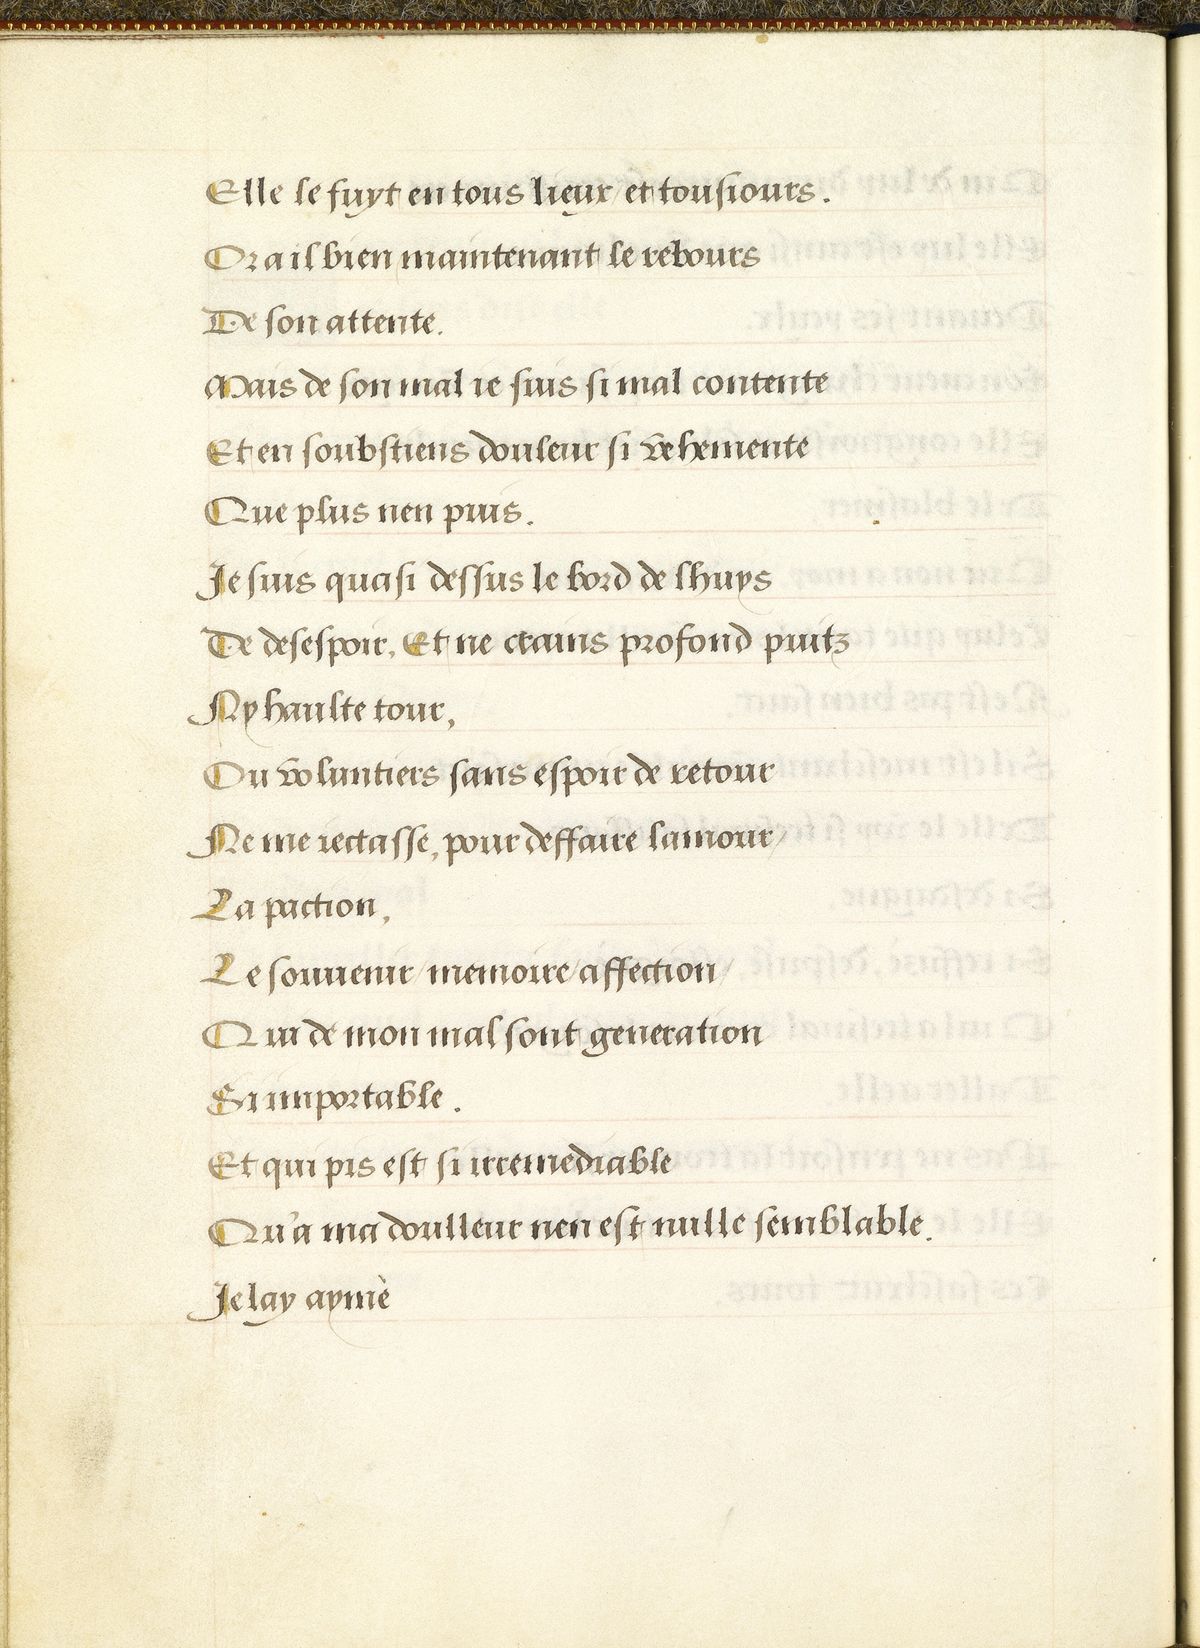 Elle le fuyt en tous lieux / et tousiours.
Or a il bien maintenant le rebours
De son attente.
Mais de son mal ie suis si mal contente
Et en soubstiens douleur si vehemente
Que plus nen puis.
Je suis quasi dessus le bord de lhuys
De desespoir, Et ne crains profond puitz
Ny haulte tour,
Ou voluntiers sans espoir de retour
Ne me iectasse, pour deffaire lamour /
La paction,
Le souuenir / memoire / affection /
Qui de mon mal sont generation
Si importable.
Et qui pis est si irremediable
Qu'a ma doulleur nen est nulle semblable.
Je lay aymé